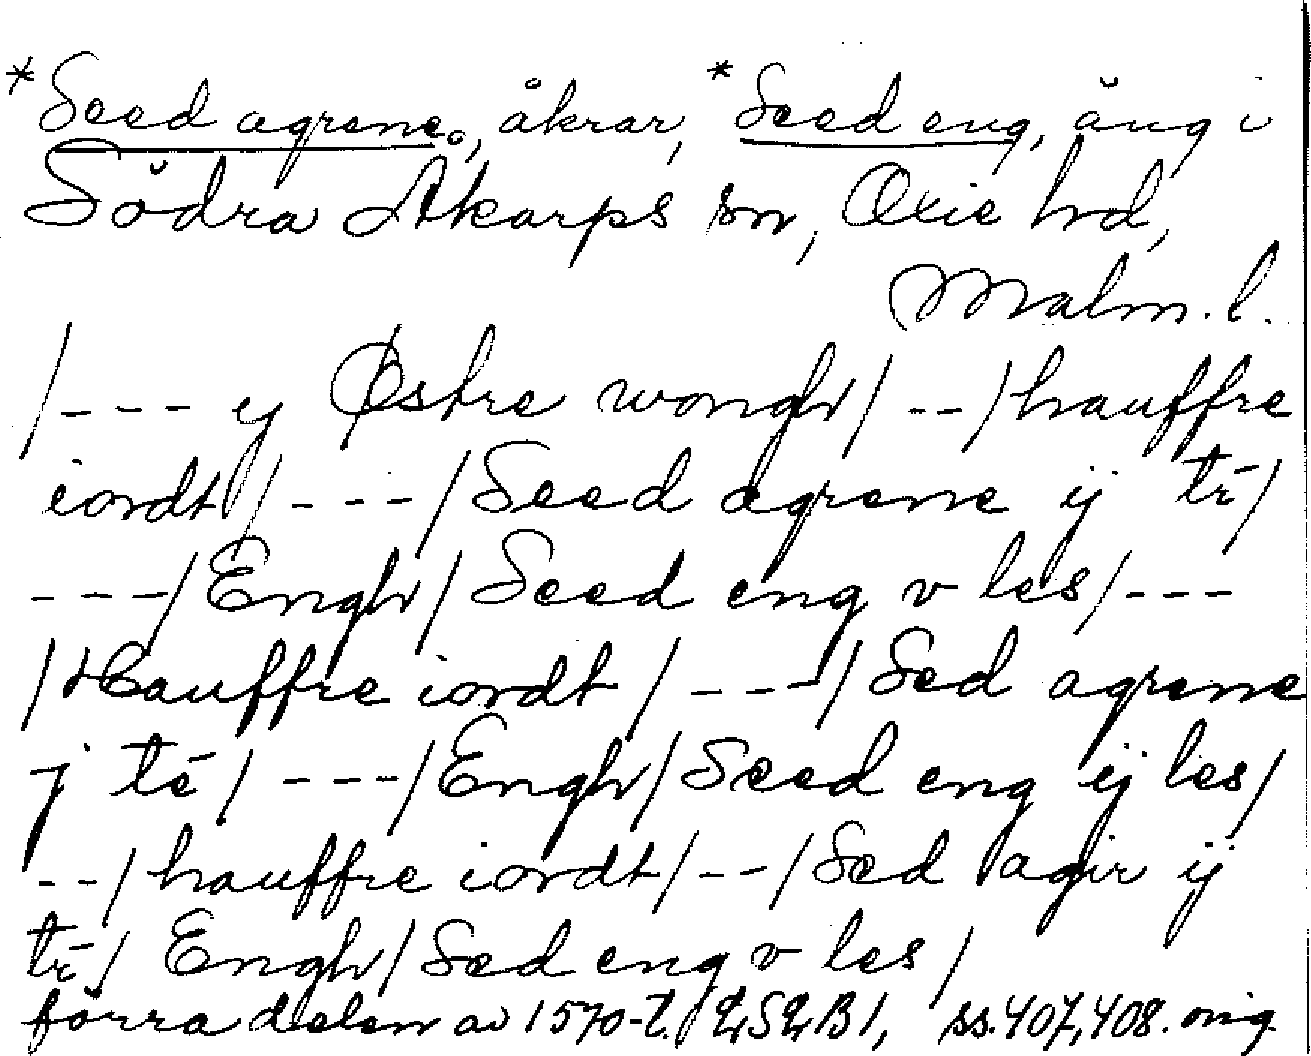 *Seed agrene, åkrar, *Seed eng, äng i
Södra Åkarps sn, Oxie hd,
Malm. l.
/--- y Østre wongh/ --/hauffre
iordt/ ---/Seed agrene ij tr̄/
---/Engh/Seed eng v les/---
/Hauffre iordt/---/Sed agrene
j tē/---/Engh/Seed eng ij les/
--/hauffre iordt/--/Sed agir ij
tr̄/ Engh/Sed eng v les/
förra delen av 1570-t. LSLB1, ss. 407, 408. orig